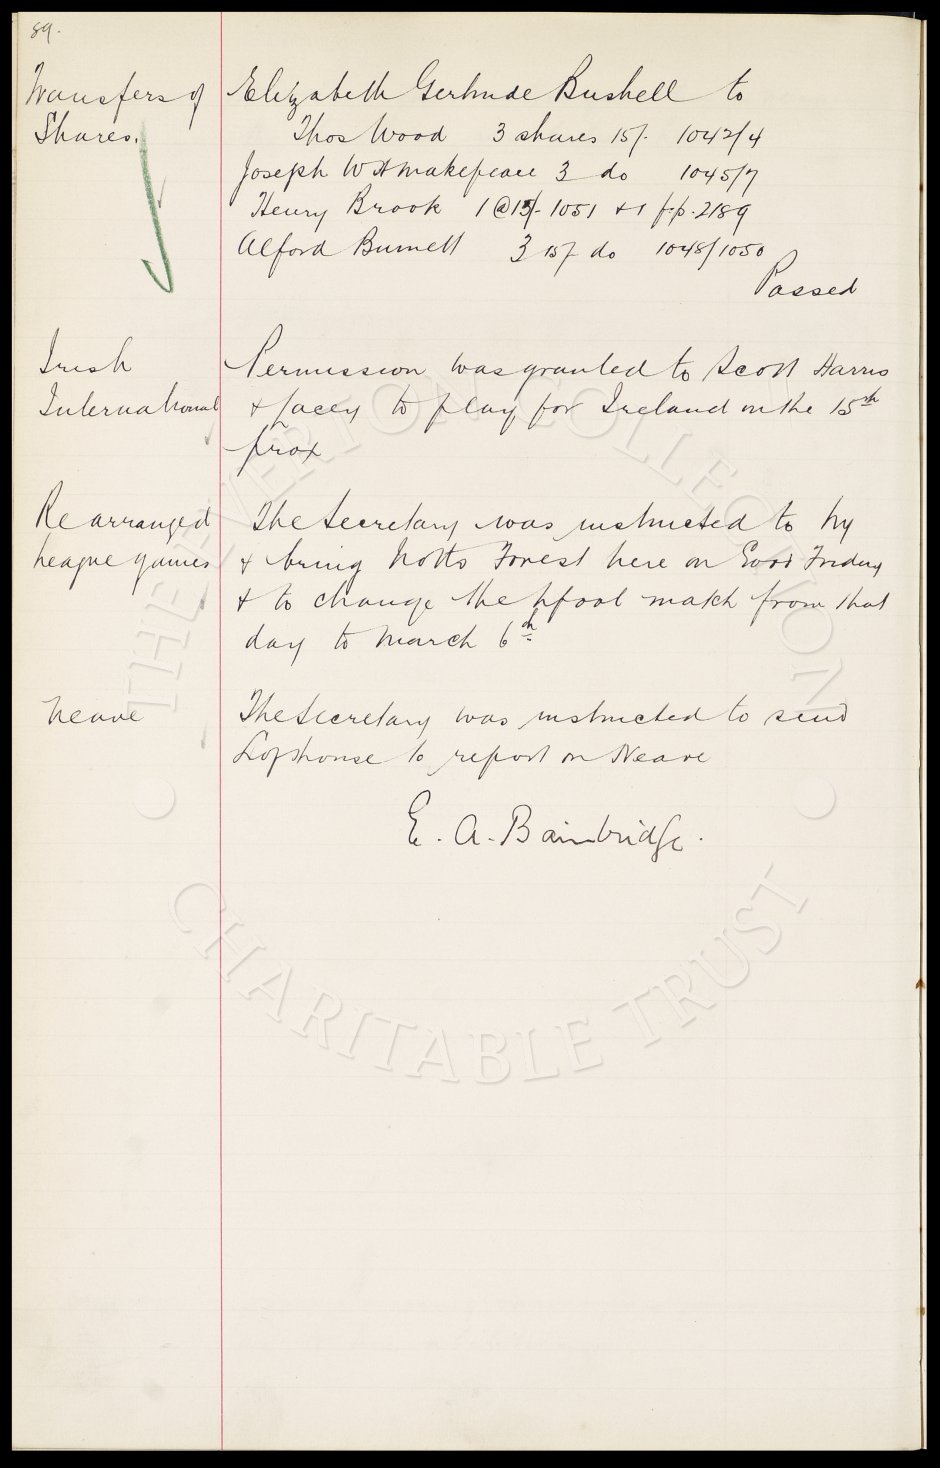 89.
Transfers of Elizabeth Gertrude Bushell to
Shares. Thos Wood 3 shares 15/- 1042/4
Joseph Wm Makepeace 3 do 1045/7
Henry Brook 1 @ 15/- 1051 + 1 f.p. 2189
Alford Burnett 3 15/- do 1048/1050
Passed
Irish Permission was granted to Scott Harris
International & Lacey to play for Ireland on the 15th
prox
Rearranged The Secretary was instructed to try
League games & bring Notts Forest here on Good Friday
& to change the Lpool match from that
day to March 6th
Neave The Secretary was instructed to send
Lofthouse to report on Neave
E. A. Bainbridge.
THE EVERTON COLLECTION
CHARITABLE TRUST